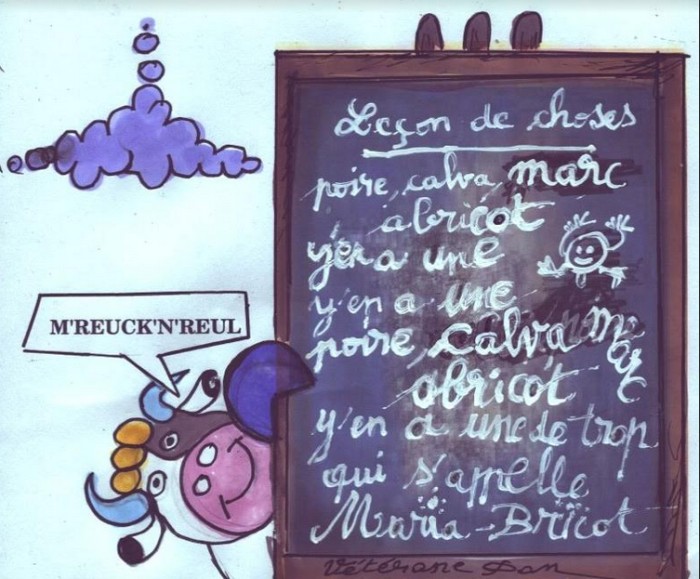 Leçon de choses
poire, calva, marc
abricot
y'en a une
y'en a une
poire, calva marc
abricot
y'en a une de trop
qui s'appelle
Maria-Bricot
M'REUCK'N'REUL
Vétérane Dan